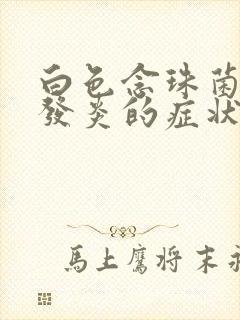 白色念珠菌
發炎的症状
馬上鷹将末